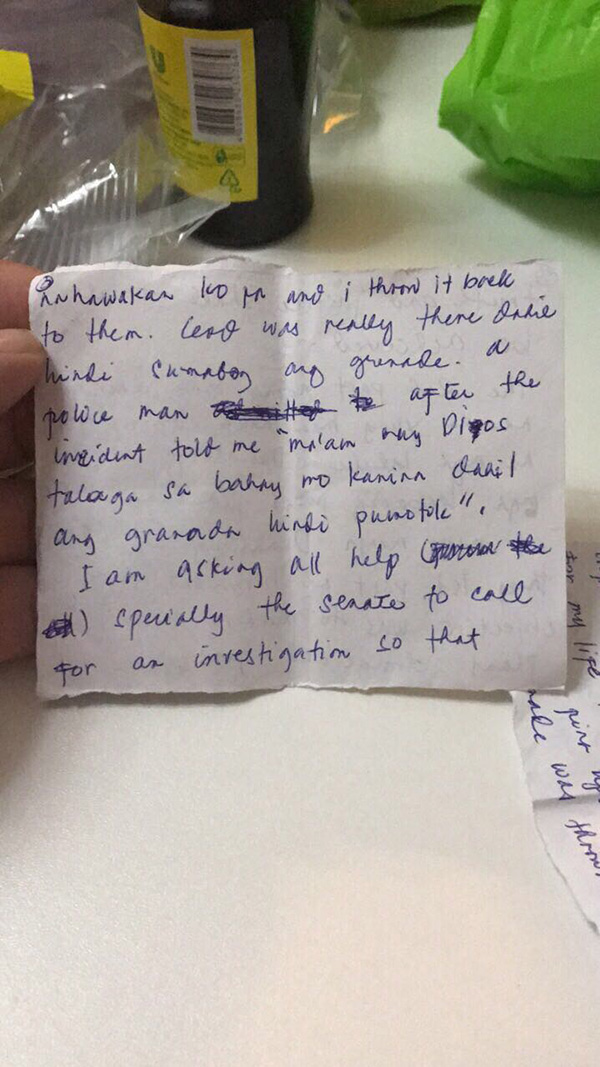 nahawakan ko pa and i throw it back
to them. Lord was really there dahil
hindi sumabog ang grenade. a
police man after the
incident told me "ma'am may Diyos
talaga sa bahay mo kanina dahil
ang granada hindi pumutok".
I am asking all help (
) specially the senate to call
for an investigation so that
for my life
nade was thrown